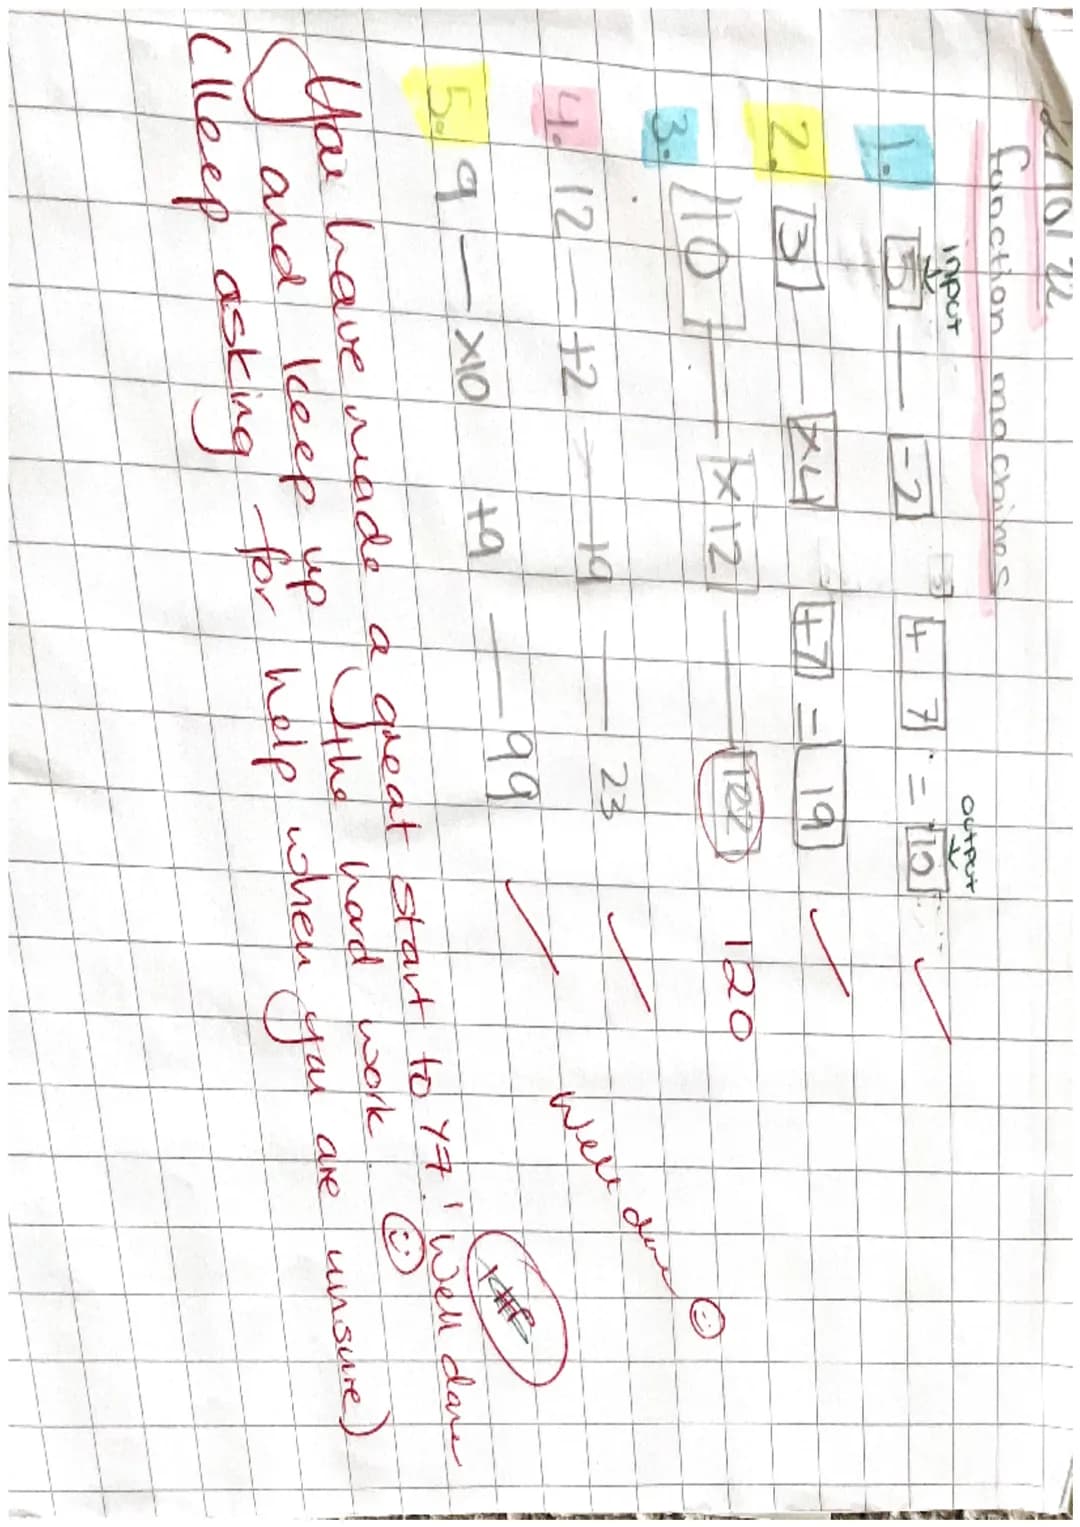 10/22
function machines
input
output
1. 5 — -2 3 + 7 = 10
2. 3 — x4 +7 = 19
3. 10 — x12 — 122 120
4. 12 — +2 — +9 — 23
5. 9 — x10 +9 — 99
Well done
You have made a great start to Y7! Well done
and keep up the hard work
(Keep asking for help when you are unsure)